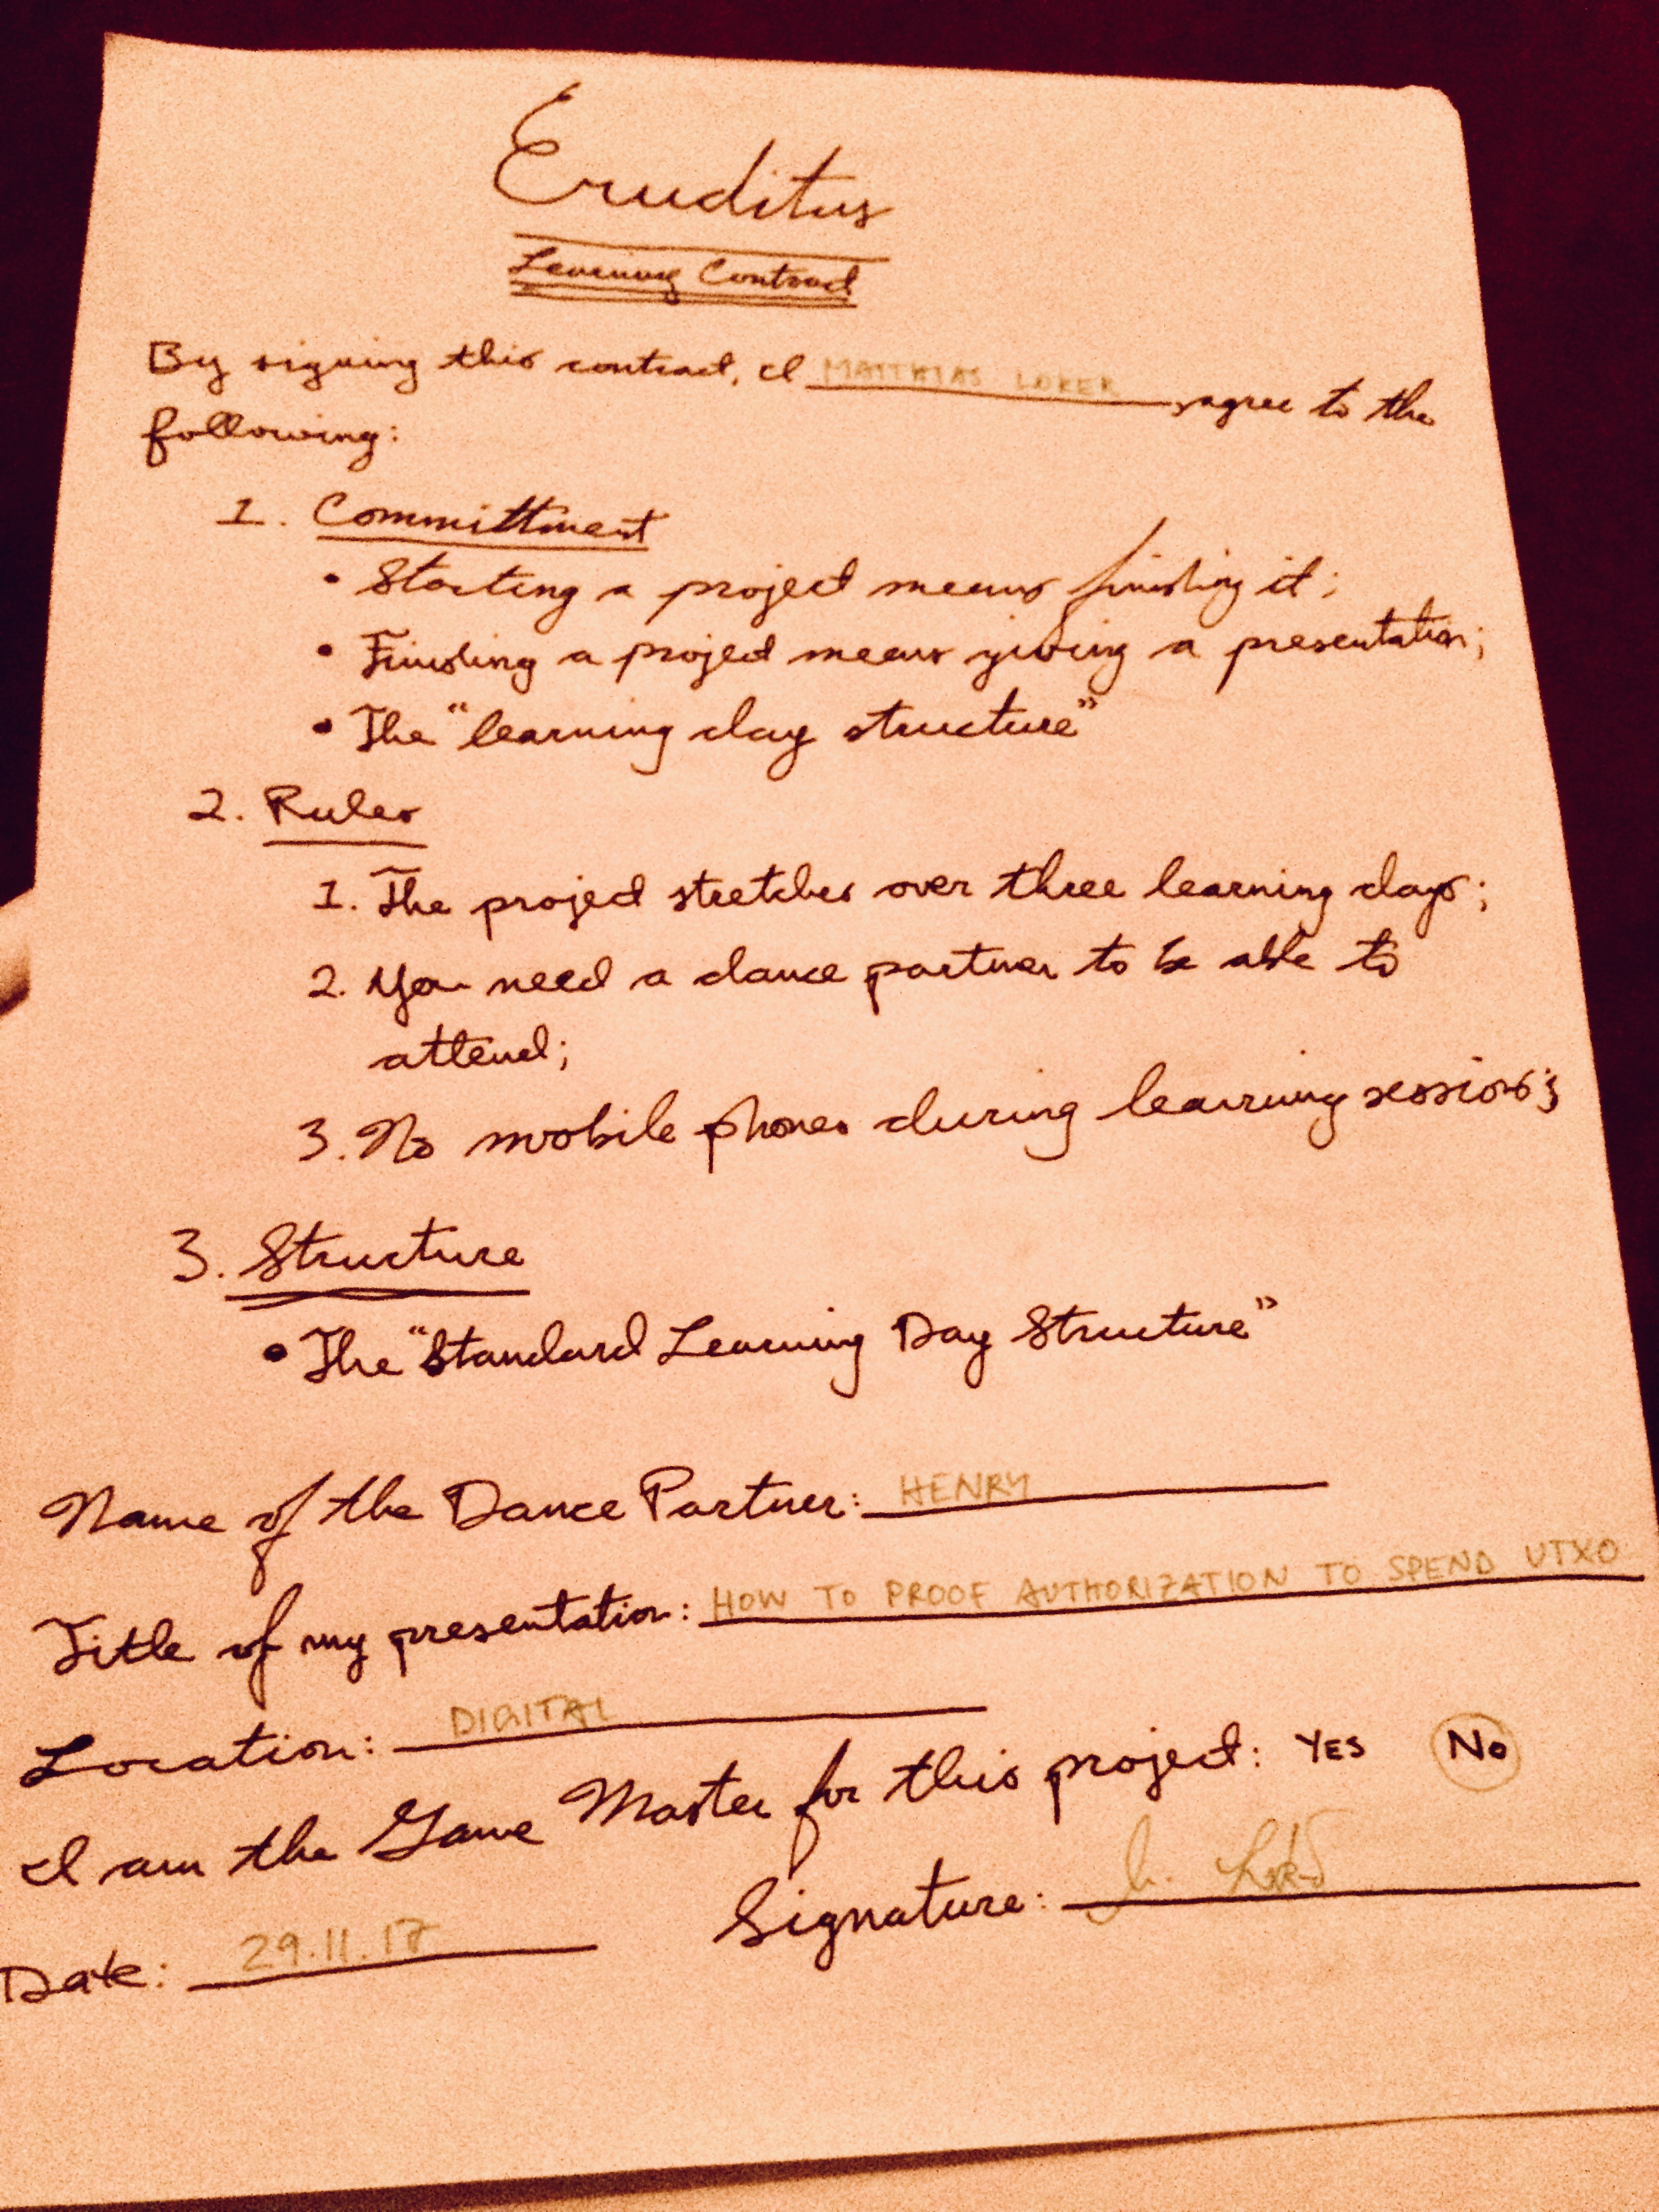 Eruditus
Learning Contract
By signing this contract, I MATTHIAS LOKER, agree to the
following:
1. Committment
• Starting a project means finishing it;
• Finishing a project means giving a presentation;
• The "learning day structure"
2. Rules
1. The project stretches over three learning days;
2. You need a dance partner to be able to
attend;
3. No mobile phones during learning sessions;
3. Structure
• The "Standard Learning Day Structure"
Name of the Dance Partner: HENRY
Title of my presentation: HOW TO PROOF AUTHORIZATION TO SPEND UTXO
Location: DIGITAL
I am the Game Master for this project: YES No
Date: 29.11.17 Signature: